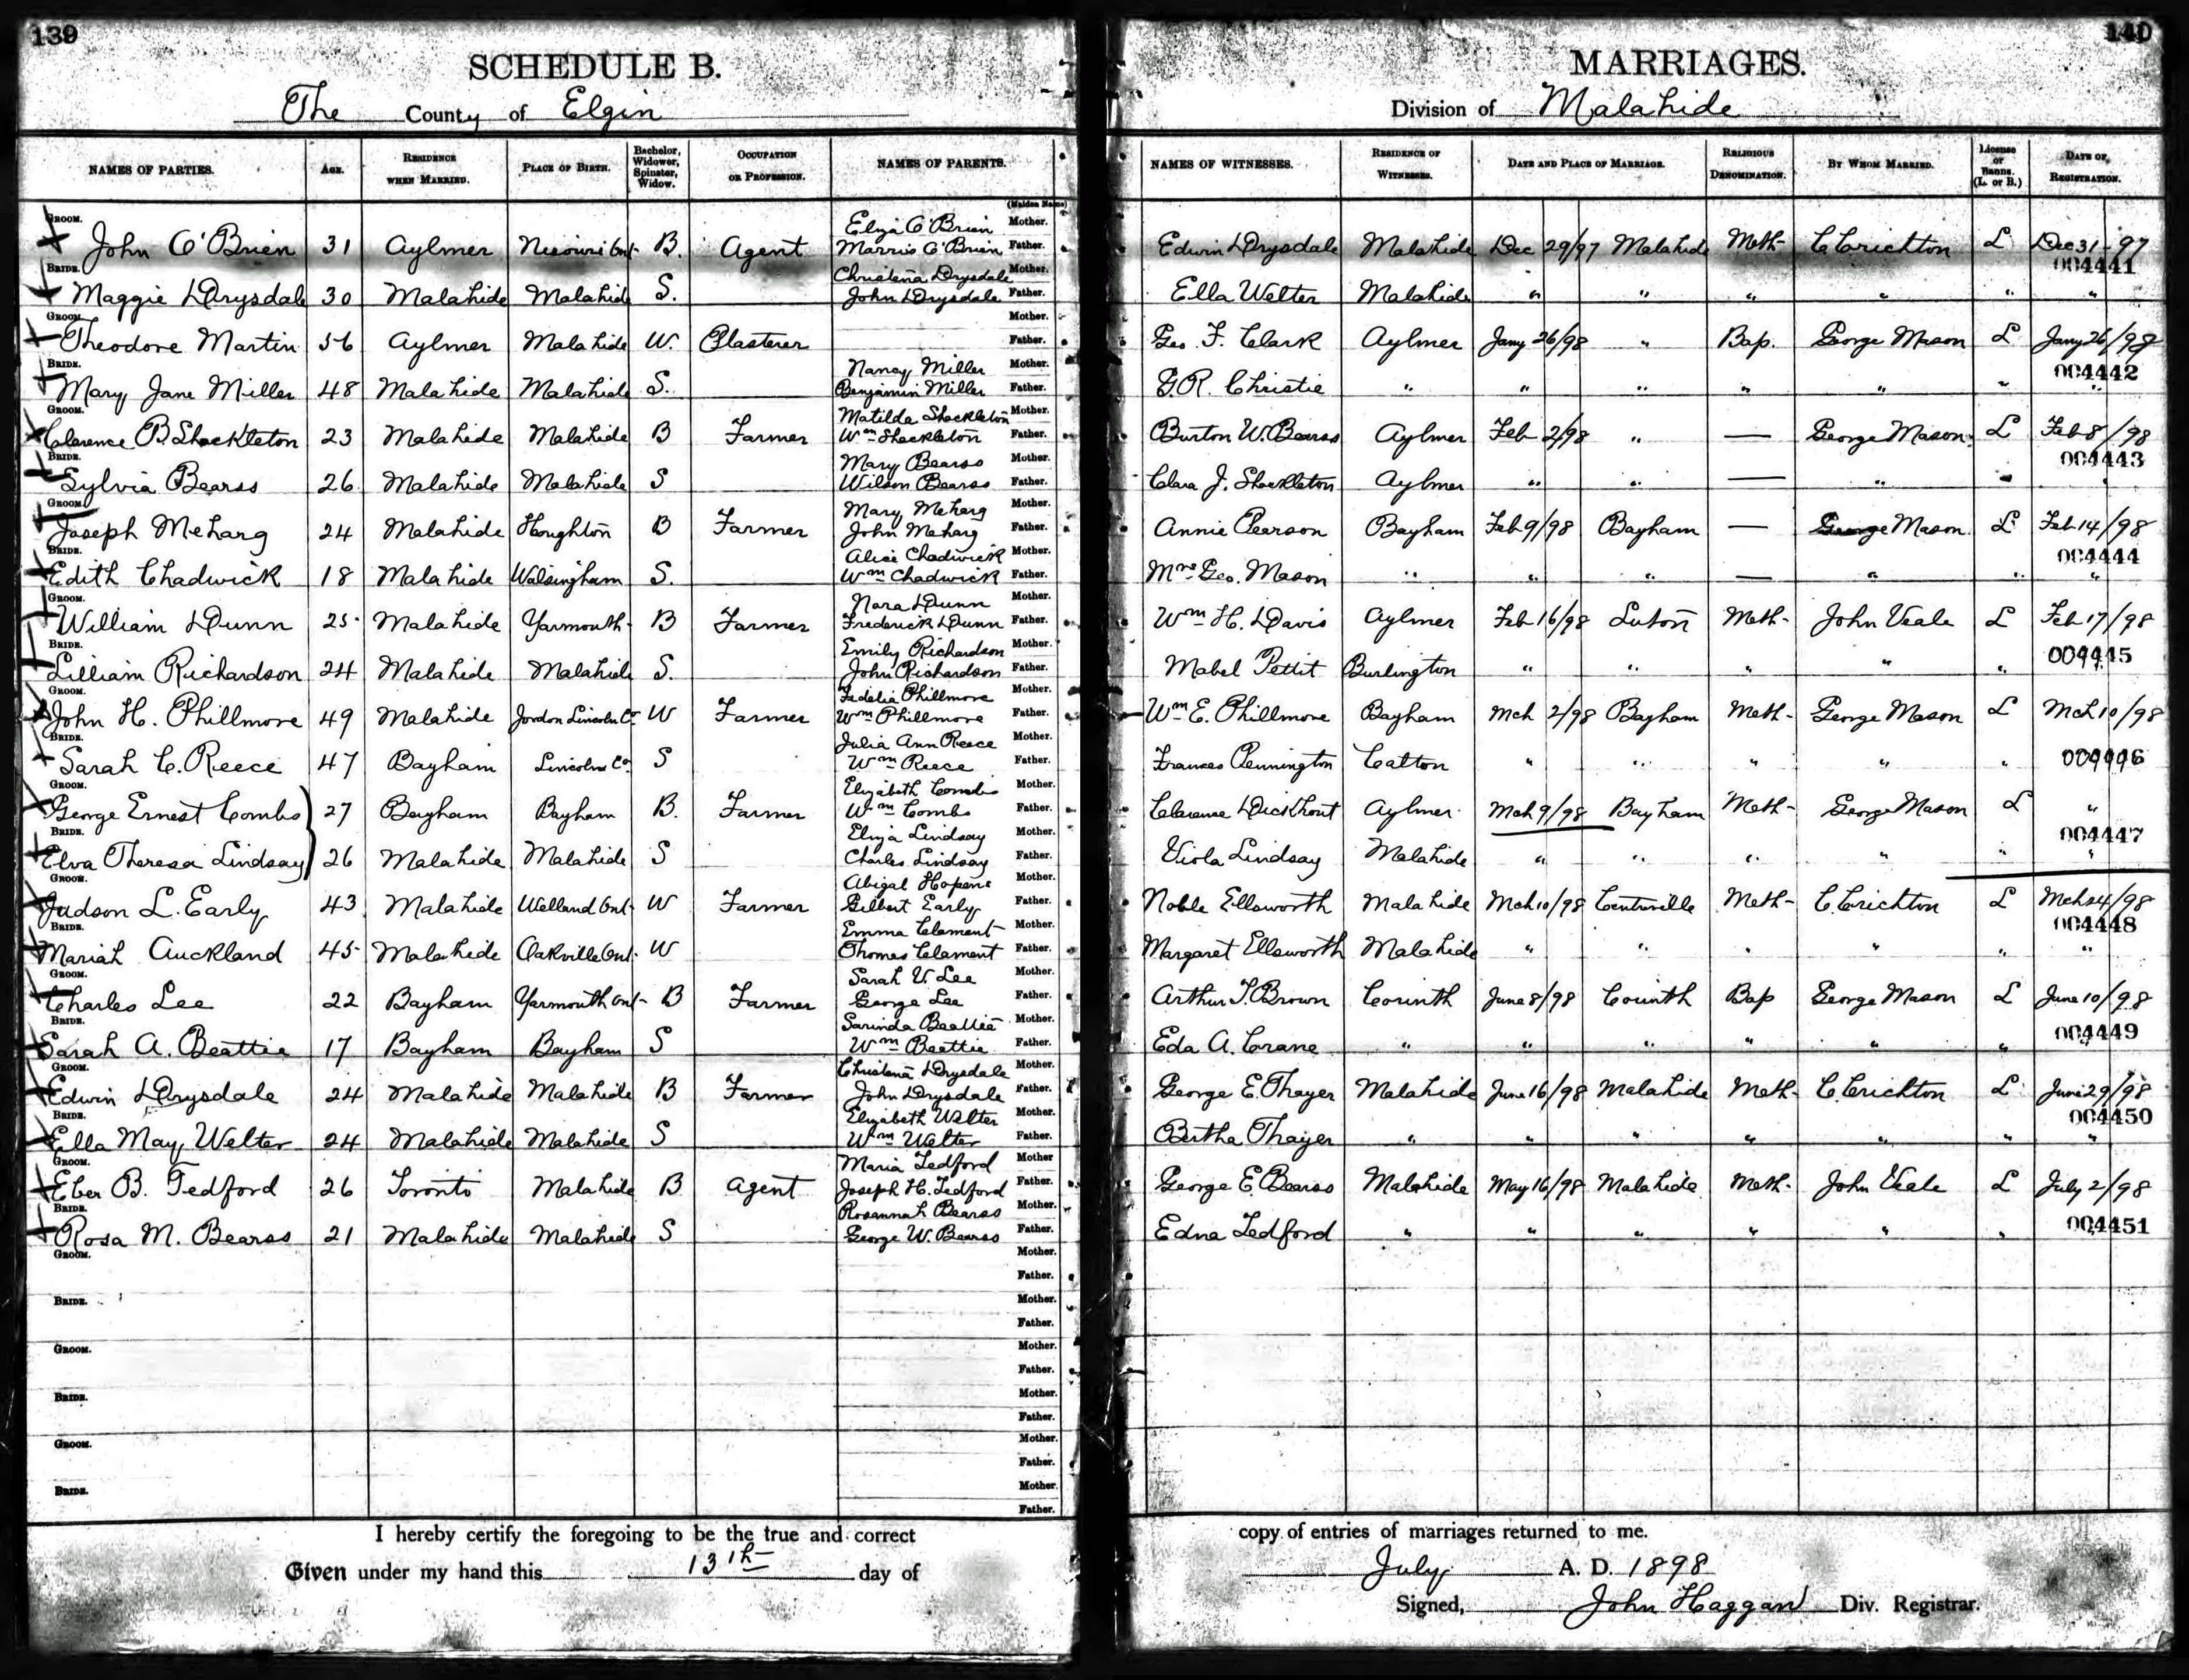 139
140
SCHEDULE B.
MARRIAGES.
The County of Elgin
Division of Malahide
NAMES OF PARTIES. AGE. RESIDENCE WHEN MARRIED. PLACE OF BIRTH. Bachelor, Widower, Spinster, Widow. OCCUPATION OR PROFESSION. NAMES OF PARENTS. (Maiden Name)
NAMES OF WITNESSES. RESIDENCE OF WITNESSES. DATE AND PLACE OF MARRIAGE. RELIGIOUS DENOMINATION. BY WHOM MARRIED. License or Banns. (L. or B.) DATE OF REGISTRATION.
GROOM. Eliza O'Brien Mother.
John O'Brien 31 Aylmer Nissouri Ont B. Agent Morris O'Brien Father. Edwin Drysdale Malahide Dec 29/97 Malahide Meth- C Crichton L Dec 31-97
004441
BRIDE. Christena Drysdale Mother.
Maggie Drysdale 30 Malahide Malahide S. John Drysdale Father. Ella Welter Malahide " " " " " "
GROOM. Mother.
Theodore Martin 56 Aylmer Malahide W. Plasterer Father. Geo. F. Clark Aylmer Jany 26/98 " Bap. George Mason L Jany 26/98
004442
BRIDE. Nancy Miller Mother.
Mary Jane Miller 48 Malahide Malahide S. Benjamin Miller Father. G.R. Christie " " " " " " "
GROOM. Matilda Shackleton Mother.
Clarence B. Shackleton 23 Malahide Malahide B Farmer Wm Shackleton Father. Burton W. Bearss Aylmer Feb 2/98 " — George Mason L Feb 8/98
004443
BRIDE. Mary Bearss Mother.
Sylvia Bearss 26 Malahide Malahide S Wilson Bearss Father. Clara J. Shackleton Aylmer " " — " " "
GROOM. Mary Meharg Mother.
Joseph Meharg 24 Malahide Houghton B Farmer John Meharg Father. Annie Pearson Bayham Feb 9/98 Bayham — George Mason L Feb 14/98
004444
BRIDE. Alice Chadwick Mother.
Edith Chadwick 18 Malahide Walsingham S. Wm Chadwick Father. Mrs Geo. Mason " " " — " " "
GROOM. Nora Dunn Mother.
William Dunn 25 Malahide Yarmouth B Farmer Frederick Dunn Father. Wm H. Davis Aylmer Feb 16/98 Luton Meth- John Veale L Feb 17/98
004445
BRIDE. Emily Richardson Mother.
Lilliam Richardson 24 Malahide Malahide S. John Richardson Father. Mabel Pettit Burlington " " " " "
GROOM. Fedelia Phillmore Mother.
John H. Phillmore 49 Malahide Jordon Lincoln Co W Farmer Wm Phillmore Father. Wm E. Phillmore Bayham Mch 2/98 Bayham Meth- George Mason L Mch 10/98
004446
BRIDE. Julia Ann Reece Mother.
Sarah C. Reece 47 Bayham Lincoln Co S Wm Reece Father. Frances Pennington Calton " " " " "
GROOM. Elizabeth Combs Mother.
George Ernest Combs 27 Bayham Bayham B. Farmer Wm Combs Father. Clarence Dickhout Aylmer Mch 9/98 Bayham Meth- George Mason L "
004447
BRIDE. Eliza Lindsay Mother.
Elva Theresa Lindsay 26 Malahide Malahide S Charles Lindsay Father. Viola Lindsay Malahide " " " " " "
GROOM. Abigal Mother.
Judson L. Early 43 Malahide Welland Ont W Farmer Gilbert Early Father. Noble Ellsworth Malahide Mch 10/98 Centreville Meth- C. Crichton L Mch 24/98
004448
BRIDE. Emma Clement Mother.
Mariah Auckland 45 Malahide Oakville Ont. W Thomas Clament Father. Margaret Ellsworth Malahide " " " " " "
GROOM. Sarah V. Lee Mother.
Charles Lee 22 Bayham Yarmouth Ont- B Farmer George Lee Father. Arthur T. Brown Corinth June 8/98 Corinth Bap George Mason L June 10/98
004449
BRIDE. Sarinda Beattie Mother.
Sarah A. Beattie 17 Bayham Bayham S Wm Beattie Father. Eda A. Crane " " " " " " "
GROOM. Christena Drysdale Mother.
Edwin Drysdale 24 Malahide Malahide B Farmer John Drysdale Father. George E. Thayer Malahide June 16/98 Malahide Meth- C. Crichton L June 29/98
004450
BRIDE. Elizabeth Welter Mother.
Ella May Welter 24 Malahide Malahide S Wm Welter Father. Bertha Thayer " " " " " " "
GROOM. Maria Tedford Mother
Eber B. Tedford 26 Toronto Malahide B Agent Joseph H. Tedford Father. George E. Bearss Malahide May 16/98 Malahide Meth- John Veale L July 2/98
004451
BRIDE. Rosannah Bearss Mother.
Rosa M. Bearss 21 Malahide Malahide S George W. Bearss Father. Edna Tedford " " " " " " "
GROOM. Mother.
Father.
BRIDE. Mother.
Father.
GROOM. Mother.
Father.
BRIDE. Mother.
Father.
GROOM. Mother.
Father.
BRIDE. Mother.
Father.
I hereby certify the foregoing to be the true and correct copy of entries of marriages returned to me.
Given under my hand this 13th day of July A. D. 1898
Signed, John Haggan Div. Registrar.